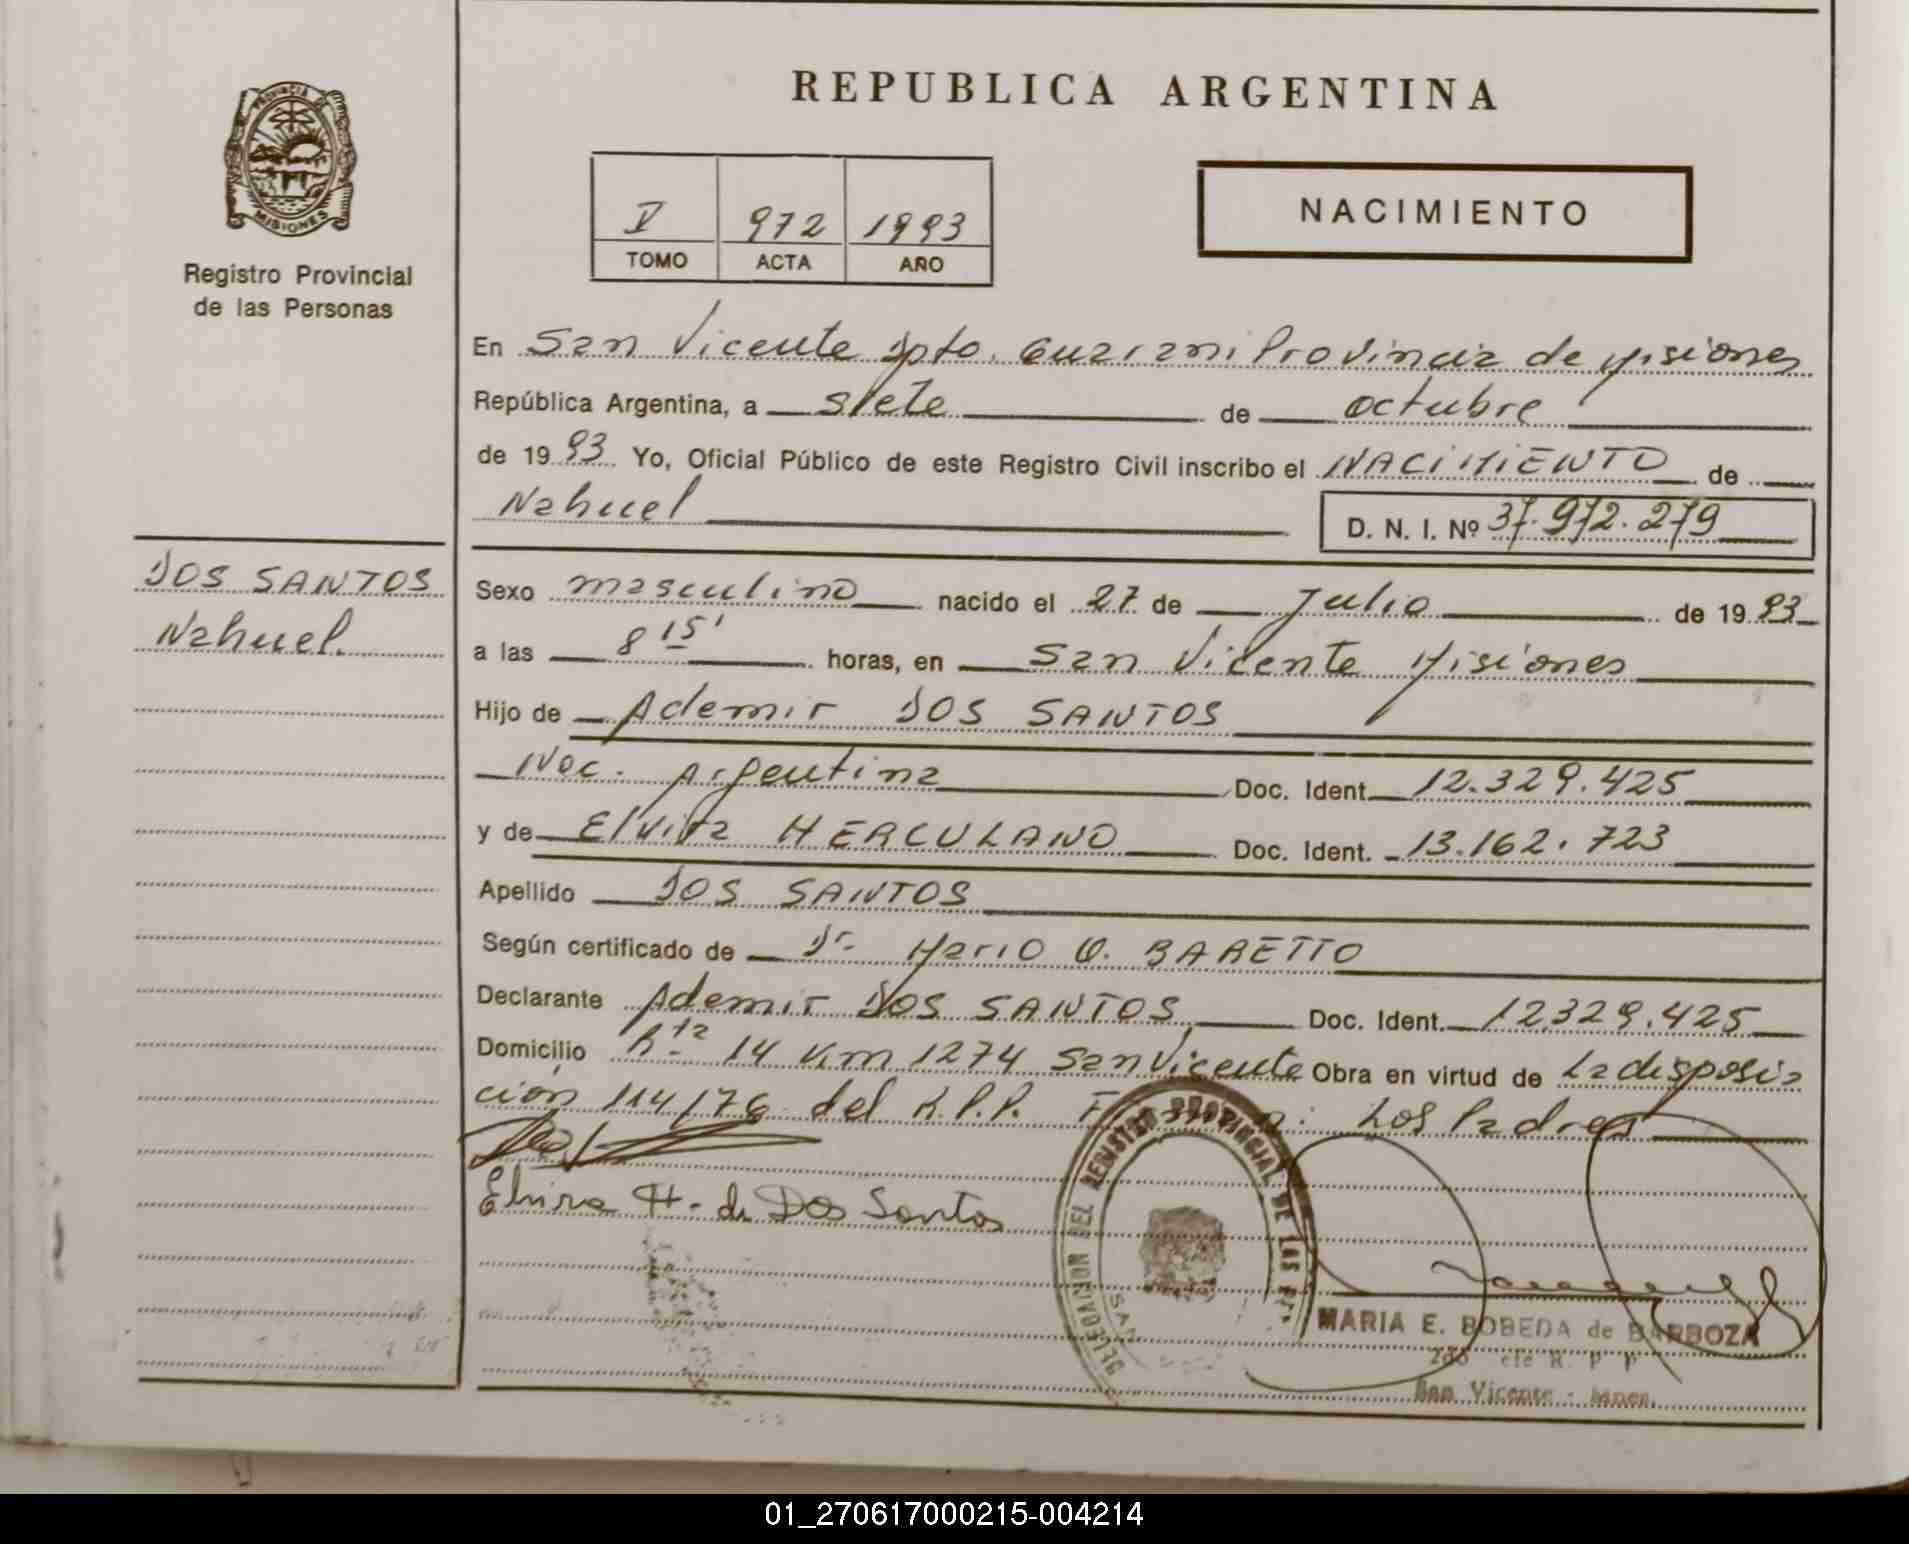 REPUBLICA ARGENTINA
PROVINCIA DE
MISIONES
Registro Provincial
de las Personas
V 972 1993
TOMO ACTA AÑO
NACIMIENTO
En San Vicente Dpto. Guarani Provincia de Misiones
República Argentina, a siete de octubre
de 19 93 Yo, Oficial Público de este Registro Civil inscribo el NACIMIENTO de
Nahuel
D. N. I. Nº 37.972.279
DOS SANTOS
Nahuel.
Sexo masculino nacido el 27 de Julio de 19 93
a las 8 15' horas, en San Vicente Misiones
Hijo de Ademir DOS SANTOS
Nac. Argentina Doc. Ident. 12.329.425
y de Elvira HERCULANO Doc. Ident. 13.162.723
Apellido DOS SANTOS
Según certificado de Dr. Mario O. BARETTO
Declarante Ademir DOS SANTOS, Doc. Ident. 12329.425
Domicilio Rta 14 Km 1274 San Vicente Obra en virtud de La disposi
ción 114/76 del R.P.P. Firman: Los Padres
Elvira H. de Dos Santos
DELEGACION DEL REGISTRO PROVINCIAL DE LAS PER
SAN
MARIA E. BOBEDA de BARBOZA
2do R. P P
San Vicente
01_270617000215-004214